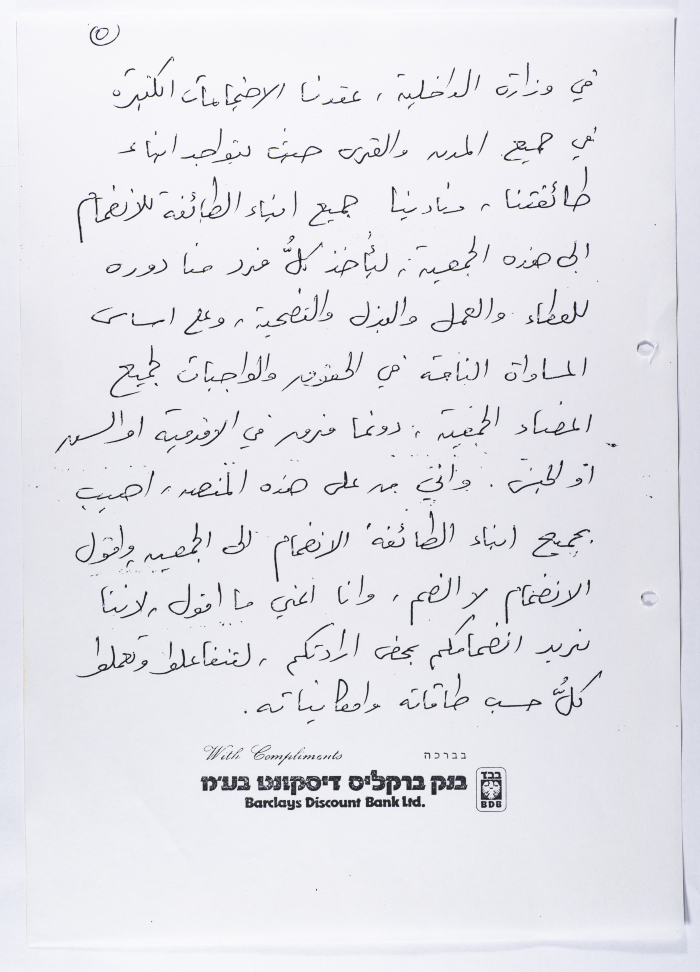 ٥
في وزارة الداخلية، عقدنا الاجتماعات الكثيرة
في جميع المدن والقرى حيث يتواجد ابناء
طائفتنا، ونادينا جميع ابناء الطائفة للانضمام
الى هذه الجمعية، ليأخذ كلُّ فرد منا دوره
للعطاء والعمل والبذل والتضحية، وعلى اساس
المساواة التامة في الحقوق والواجبات لجميع
اعضاء الجمعية، دونما فرق في الاقدمية او السن
او الجنس. وانّي من على هذه المنصه، اهيب
بجميع ابناء الطائفة الانضمام الى الجمعيه واقول
الانضمام لا الضم، وانا اعني ما اقول، لاننا
نريد انضمامكم بمحض ارادتكم، لتتفاعلوا وتعملوا
كلُّ حسب طاقاته وامكانياته.
With Compliments בברכה
בנק ברקליס דיסקונט בע"מ
Barclays Discount Bank Ltd.
בבד
BDB